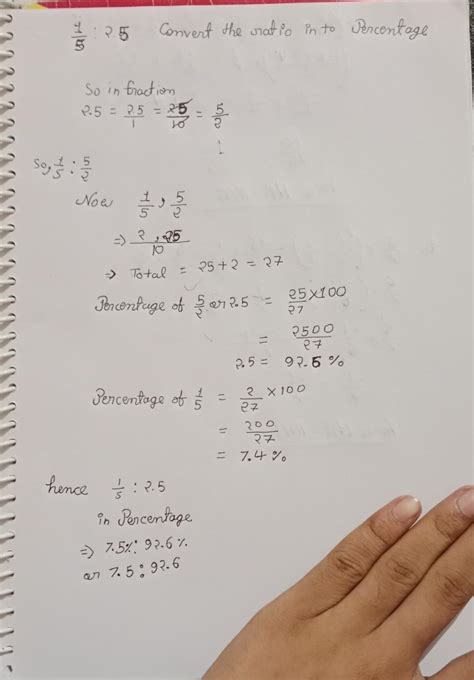 1/5 : 25 Convert the ratio in to Percentage
So in fraction
2.5 = 25/1 = 25/10 = 5/2
So, 1/5 : 5/2
Now 1/5 , 5/2
⇒ 2 , 25/10
→ Total = 25+2 = 27
Percentage of 5/2 or 2.5 = 25/27 × 100
= 2500/27
2.5 = 92.5 %
Percentage of 1/5 = 2/27 × 100
= 200/27
= 7.4 %
hence 1/5 : 2.5
in Percentage
⇒ 7.5% : 92.6 %
or 7.5 : 92.6